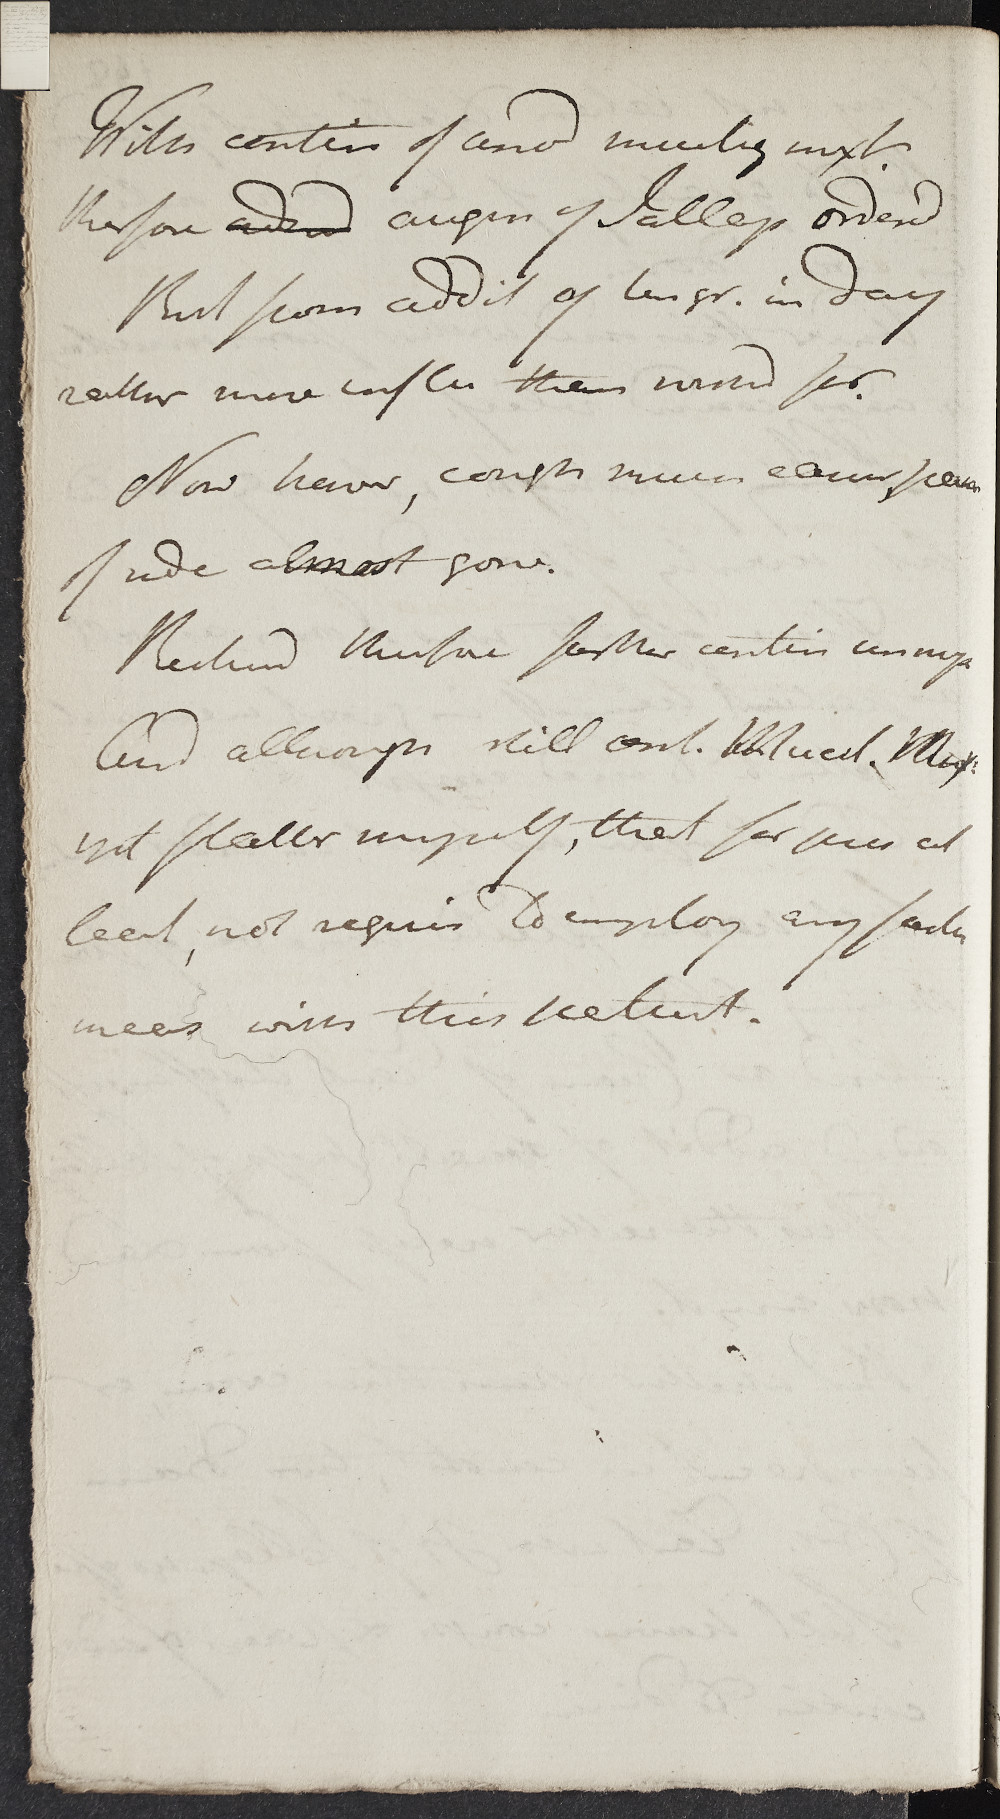 With contin of anod mucilag mixt.
therfore adend augm of Jallap orderd
But from addit of ten gr. in day
rather more influ than wishd for.
Now howr, cough much easier, pain
of side almost gone.
Reckond therfore farther contin unnecy
And although still cont. Mucil. Mixt:
yet flatter myself, that for pres at
least, not requis to employ any farther
meas with this patient.